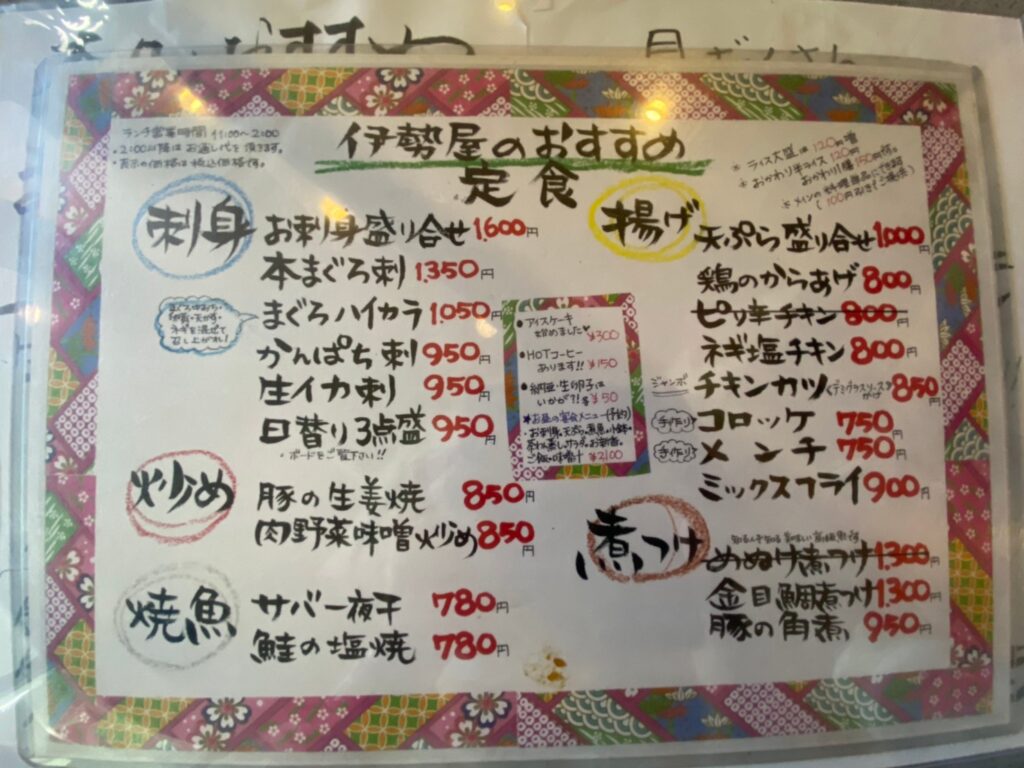 ランチ営業時間 11:00〜2:00
・2:00以降はお通し代を頂きます。
・表示の価格は税込価格です。
伊勢屋のおすすめ
定食
※ライス大盛は120円増
※おかわり半ライス120円
おかわり1膳150円
刺身
お刺身盛り合せ 1,600円
本まぐろ刺 1,350円
まぐろハイカラ 1,050円
ネギを混ぜて
召し上がれ!
かんぱち刺 950円
生イカ刺 950円
日替り3点盛 950円
・ボードをご覧下さい!!
炒め
豚の生姜焼 850円
肉野菜味噌炒め 850円
焼魚
サバ一夜干 780円
鮭の塩焼 780円
・アイスケーキ
始めました♥
¥300
・HOTコーヒー
あります!! ¥150
・納豆・生の卵子は
いかが?!各¥50
★お昼の宴会メニュー(予約)
・お刺身、天ぷら、煮魚、小鉢・
茶わん蒸し、サラダ、お新香、
ご飯・味噌汁 ¥2,100
揚げ
天ぷら盛り合せ 1,000円
鶏のからあげ 800円
ピリ辛チキン 800円
ネギ塩チキン 800円
ジャンボ チキンカツ(デミグラスソースかけ) 850円
手作り コロッケ 750円
手作り メンチ 750円
ミックスフライ 900円
煮つけ
めぬけ煮つけ 1,300円
金目鯛煮つけ 1,300円
豚の角煮 950円